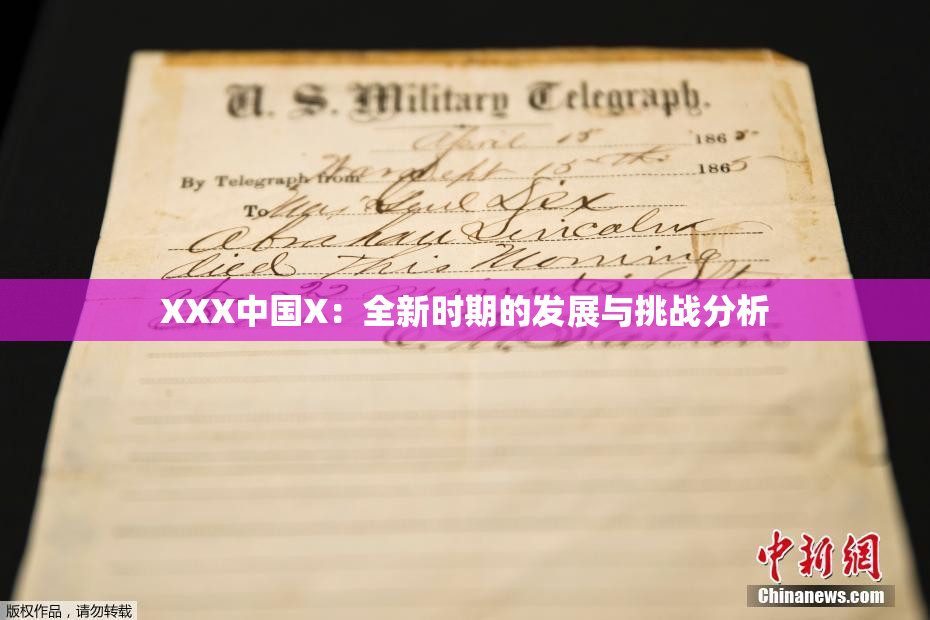 U. S. Military Telegraph.
April 15 1865
By Telegraph from War Dept 15th 1865
To Maj Genl Dix
Abraham Lincoln
died This Morning
at 22 minutes after
E. M. Stanton
XXX中国X：全新时期的发展与挑战分析
中新网
Chinanews.com
版权作品，请勿转载